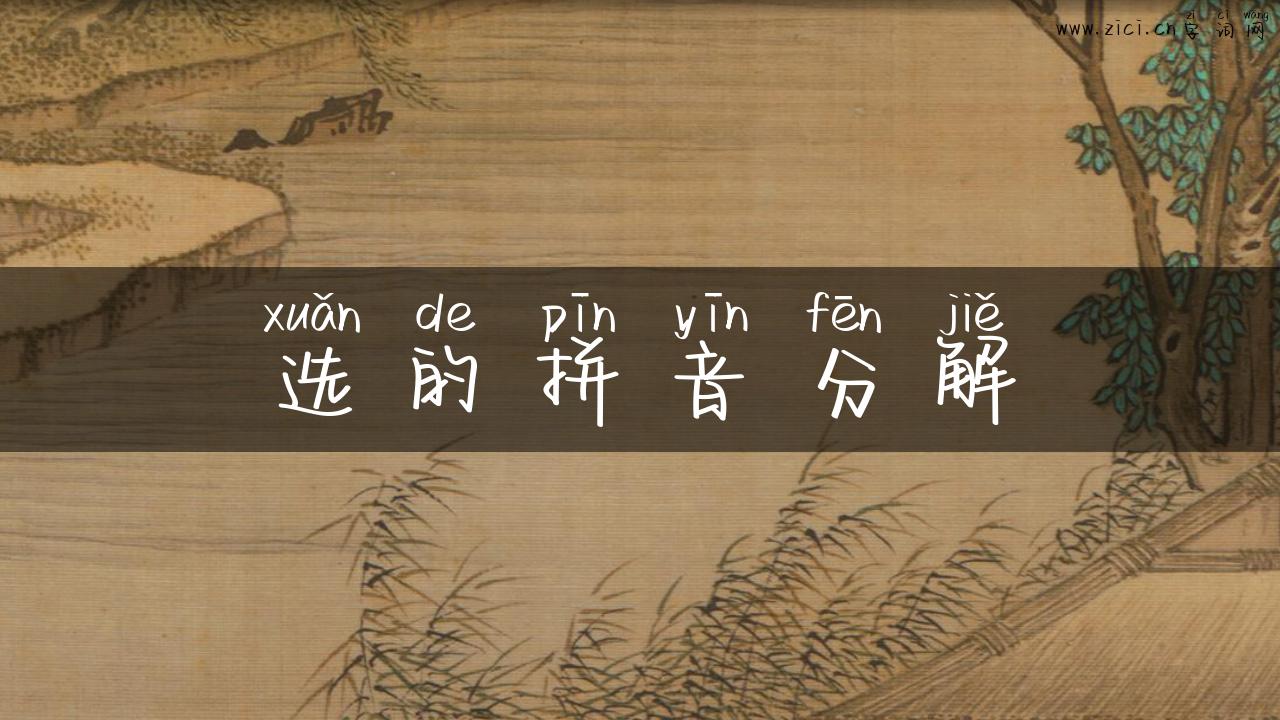 zì cí wǎng
www.zici.cn字词网
xuǎn de pīn yīn fēn jiě
选的拼音分解